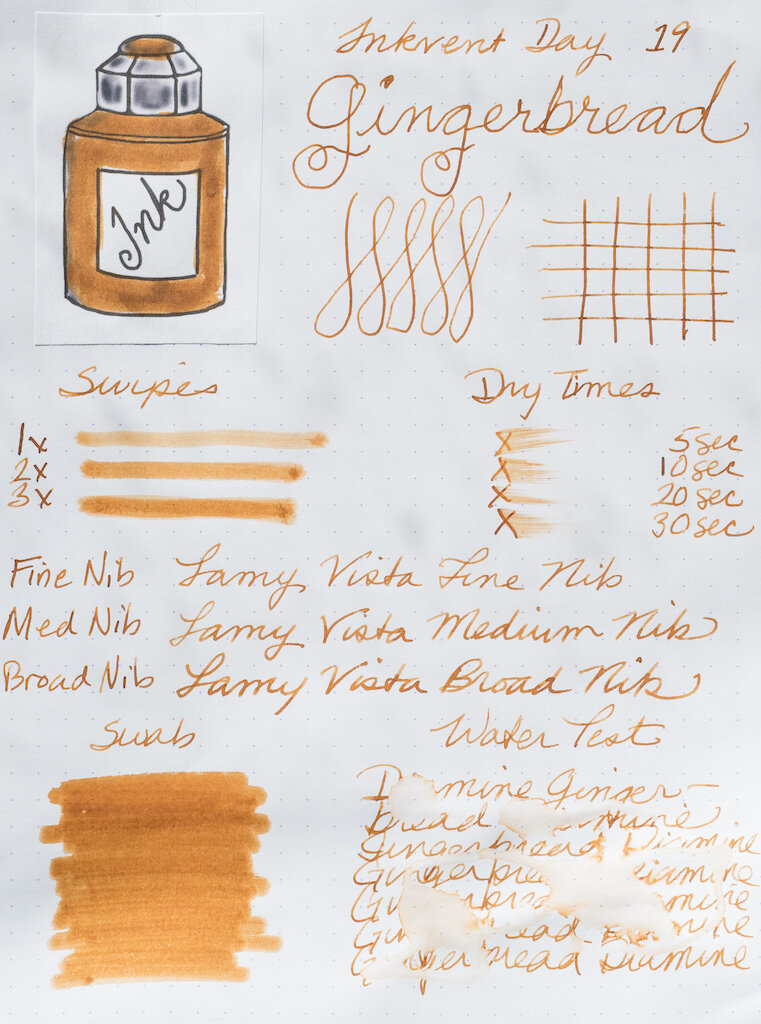 Ink
Inkvent Day 19
Gingerbread
Swipes
1x
2x
3x
Dry Times
X 5 sec
X 10 sec
X 20 sec
X 30 sec
Fine Nib Lamy Vista Fine Nib
Med Nib Lamy Vista Medium Nib
Broad Nib Lamy Vista Broad Nib
Swab
Water Test
Diamine Ginger-
bread
Gingerbread Diamine
Diamine